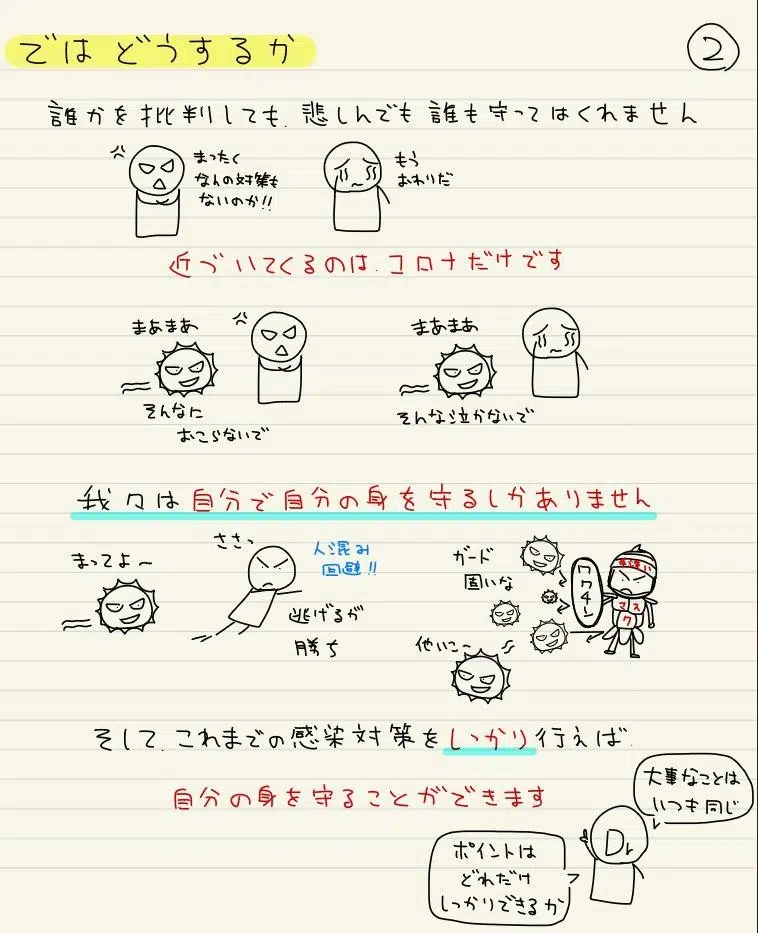 では どうするか
②
誰かを批判しても、悲しんでも 誰も守ってはくれません
まったく
なんの対策も
ないのか!!
もう
おわりだ
近づいてくるのは、コロナだけです
まあまあ
そんなに
おこらないで
まあまあ
そんな泣かないで
我々は 自分で自分の身を守るしかありません
まってよ〜
ささっ
人混み
回避!!
逃げるが
勝ち
ガード
固いな
他いこ〜
ワクチン
手洗い
マス
ク
そして、これまでの感染対策をしっかり行えば、
自分の身を守ることができます
大事なことは
いつも同じ
Dr
ポイントは
どれだけ
しっかりできるか